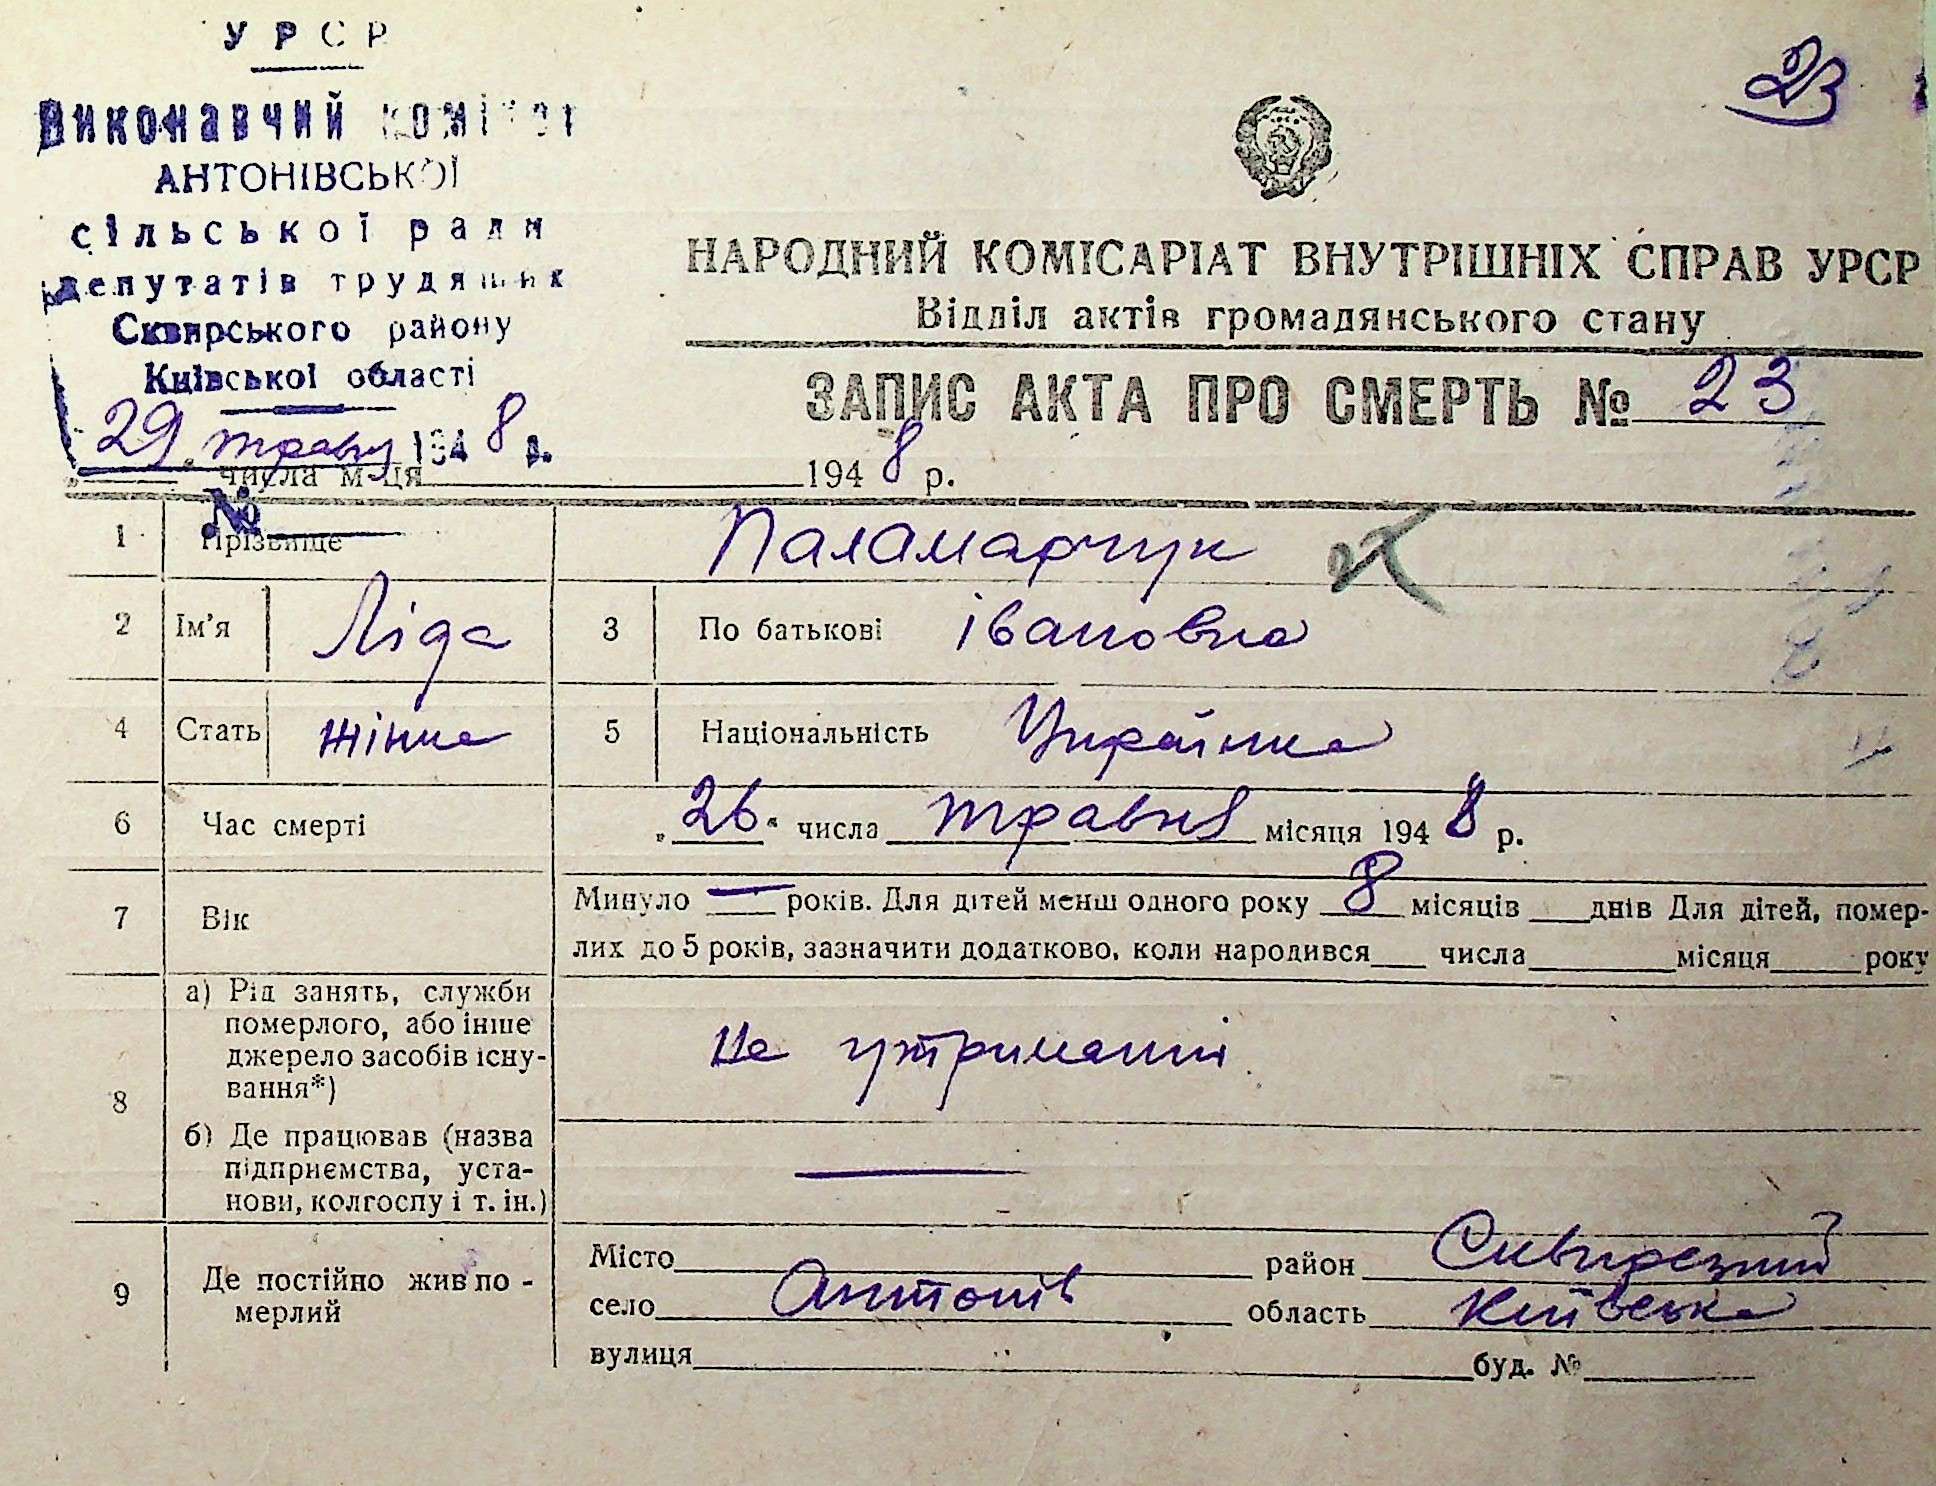 УРСР
Виконавчий комітет
АНТОНІВСЬКОЇ
сільської ради
депутатів трудящих
Сквирського району
Київської області
29 травня 1948 р.
№
23
НАРОДНИЙ КОМІСАРІАТ ВНУТРІШНІХ СПРАВ УРСР
Відділ актів громадянського стану
ЗАПИС АКТА ПРО СМЕРТЬ № 23
„ числа м-ця 1948 р.
1 Прізвище Паламарчук
2 Ім'я Ліда 3 По батькові Івановна
4 Стать жінка 5 Національність Українка
6 Час смерті „26“ числа травня місяця 1948 р.
7 Вік Минуло — років. Для дітей менш одного року 8 місяців днів Для дітей, помер-
лих до 5 років, зазначити додатково, коли народився числа місяця року
8 а) Рід занять, служби
померлого, або інше
джерело засобів існу-
вання*) На утриманні
б) Де працював (назва
підприємства, уста-
нови, колгоспу і т. ін.) —
9 Де постійно жив по-
мерлий
Місто район Сквирський
село Антонів область Київська
вулиця буд. №